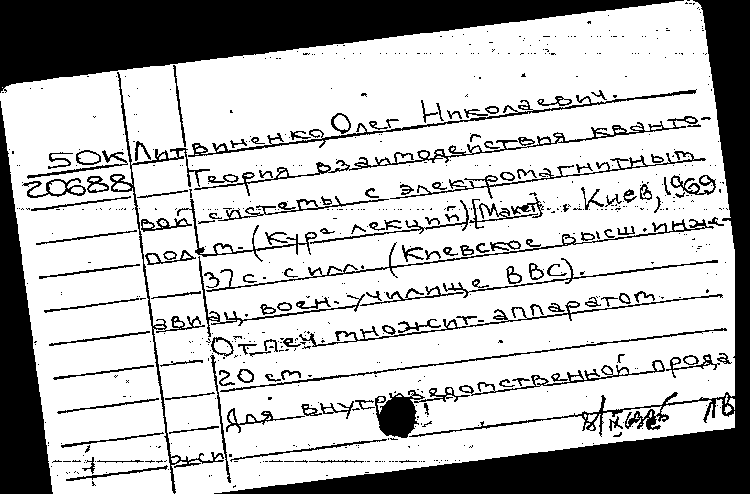 50К Литвиненко, Олег Николаевич.
20688 Теория взаимодействия кванто-
вой системы с электромагнитным
полем. (Курс лекций) [Макет]. Киев, 1969.
37 с. с илл. (Киевское высш. инж-
авиац. воен. училище ВВС).
Отпеч. множит. аппаратом.
20 см.
Для внутриведомственной прода
жи.
ЛВ